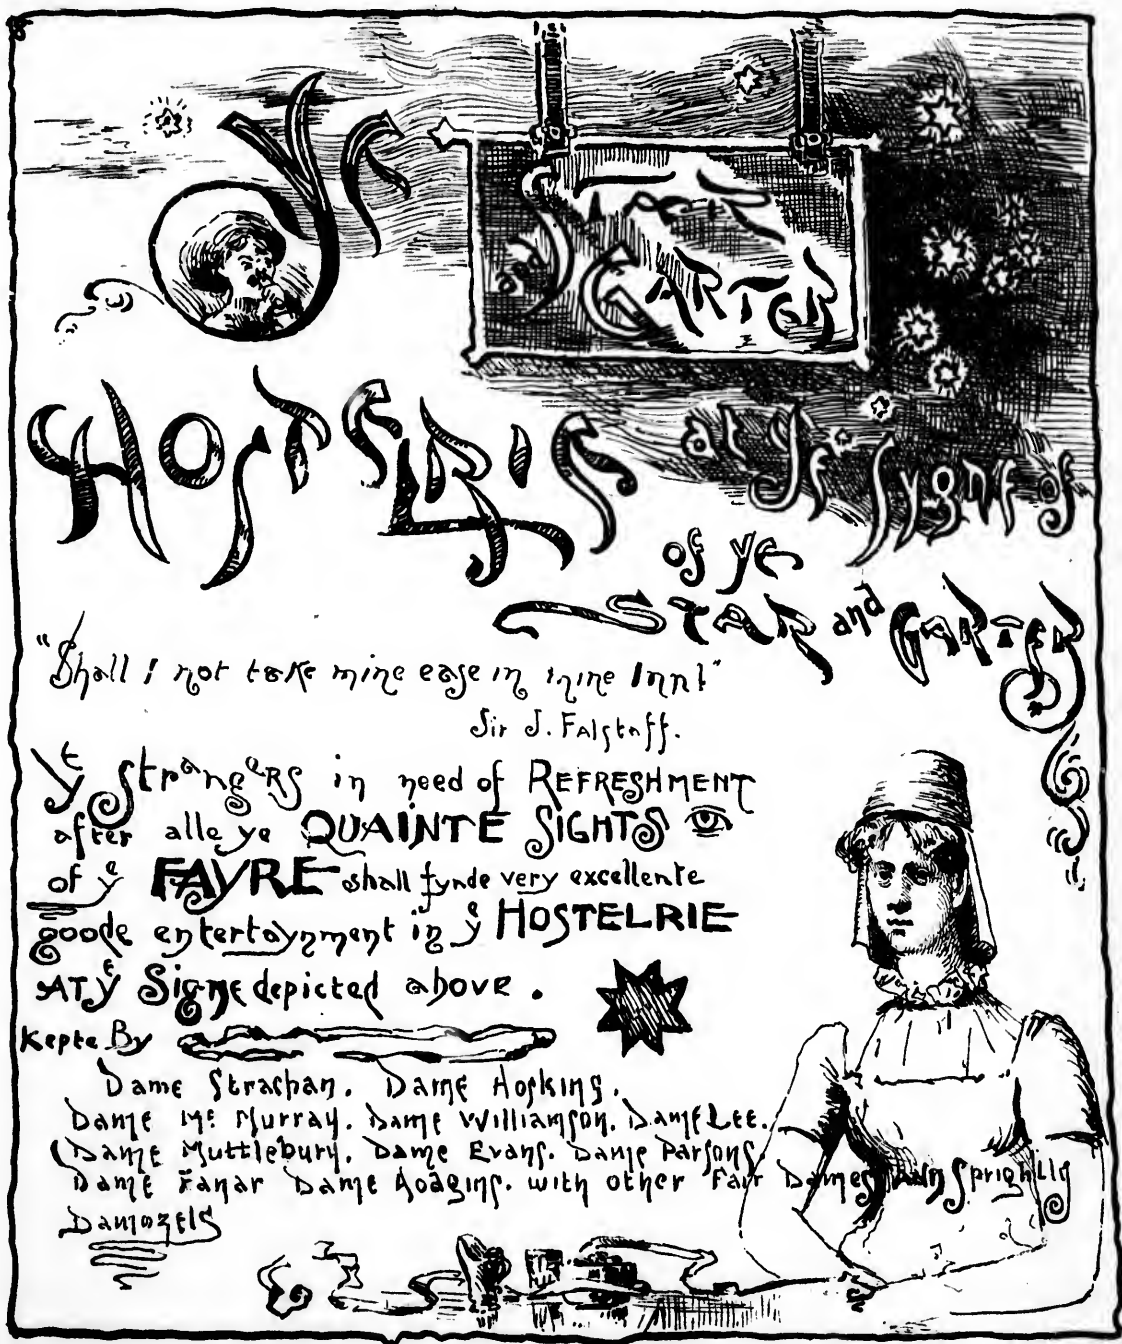 Ye
STAR
& GARTER
HOSTELRIE at Ye Sygne of
of ye
STAR and GARTER
"Shall I not take mine ease in mine Inn!"
Sir J. Falstaff.
Ye Strangers in need of REFRESHMENT
after alle ye QUAINTE SIGHTS
of ye FAYRE shall fynde very excellente
goode entertaynment in ye HOSTELRIE
AT ye Signe depicted above.
Kepte By
Dame Strachan. Dame Hoskins.
Dame Mc Murray. Dame Williamson. Dame Lee.
Dame Muttlebury. Dame Evans. Dame Parsons.
Dame Dame with other Fair Dames And Sprightly
Damozels